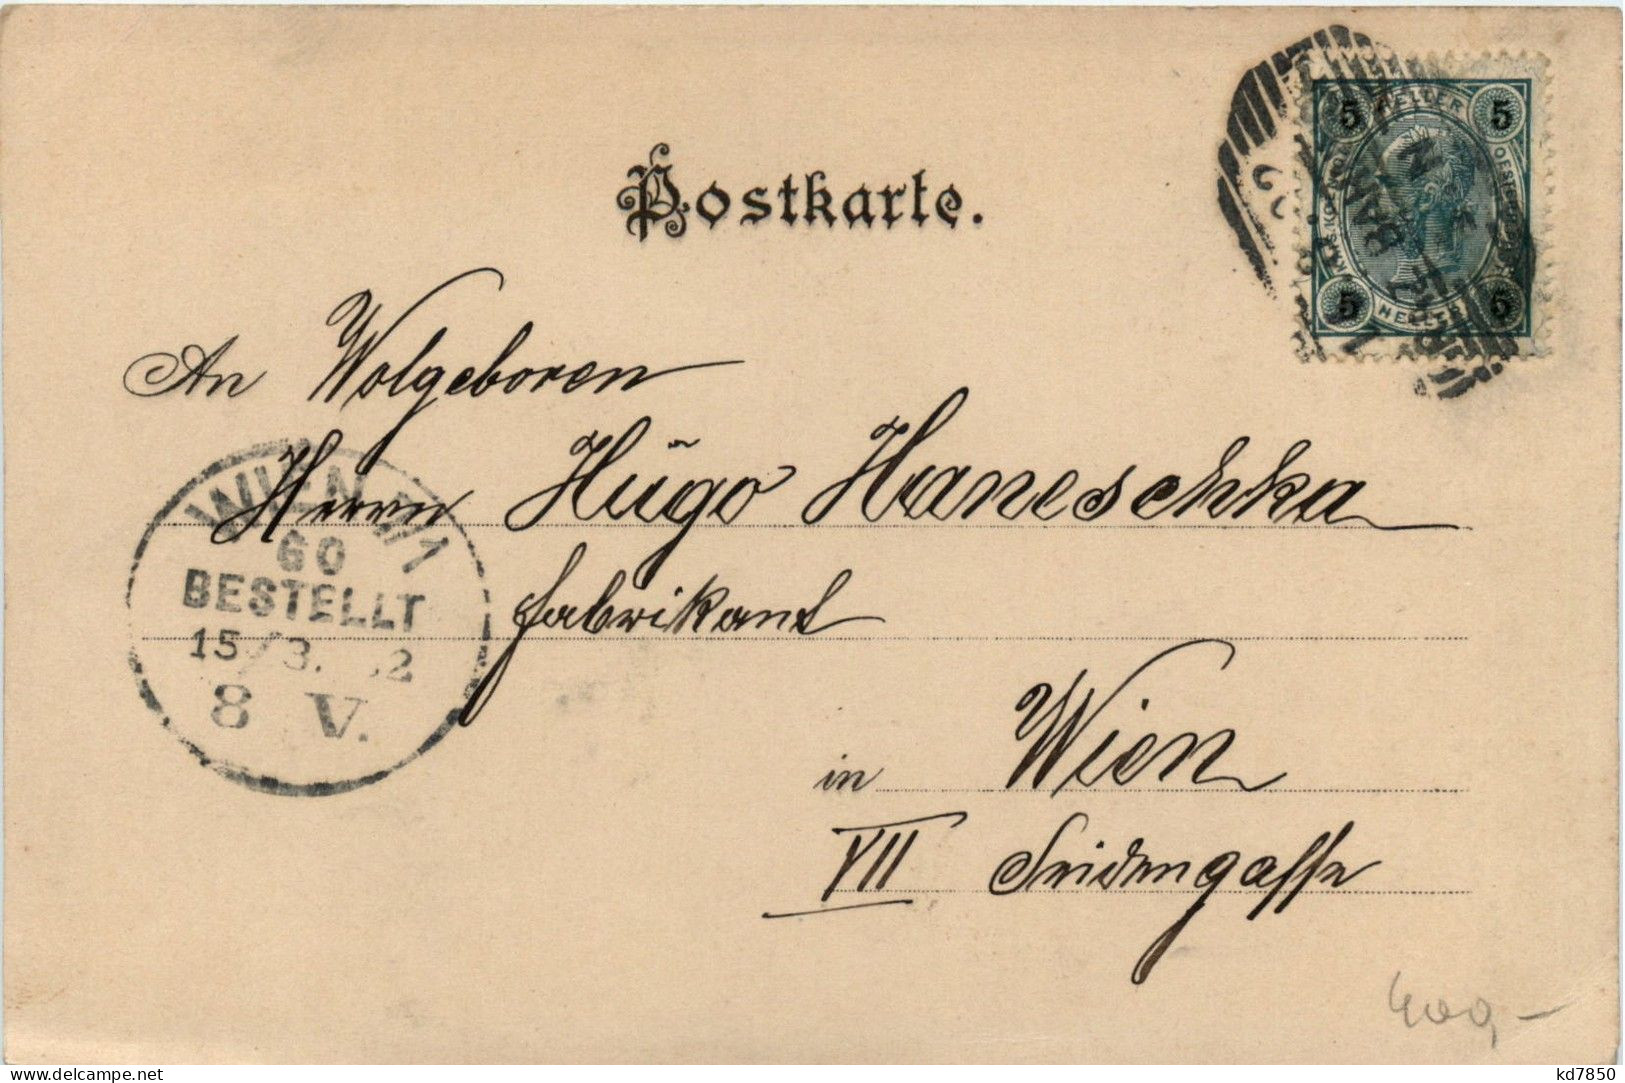 Postkarte.
5 HELLER 5
5 HELLER 5
An Wolgeboren
Herrn Hŭgo Haneschka
Fabrikant
in Wien
VII Seidengasse
WIEN 7/1
60
BESTELLT
15/3. 2
8 V.
400,-
www.delcampe.net
kd7850